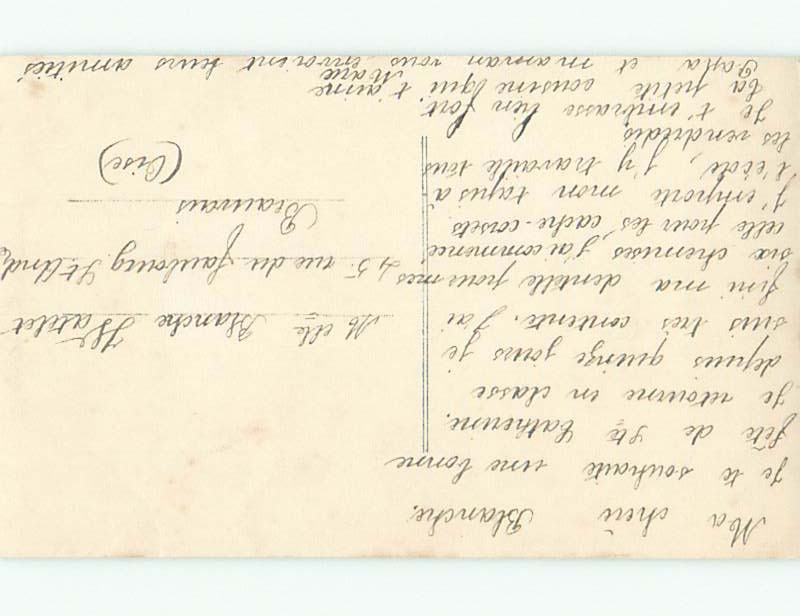 Ma chère Blanche.
Je te souhaite une bonne
fête de Ste Catherine.
Je retourne en classe
depuis quinze jours je
suis très contente. J'ai
fini ma dentelle pour mes
six chemises, j'ai commencé
celle pour les cache-corsets
J'emporte mon tapis à
l'école, j'y travaille tous
les vendredis
Je t'embrasse bien fort.
La petite cousine qui t'aime
Marie
Papa et maman vous envoient leurs amitiés
Melle Blanche Watelet
45 rue du faubourg St André
Beauvais
(Oise)